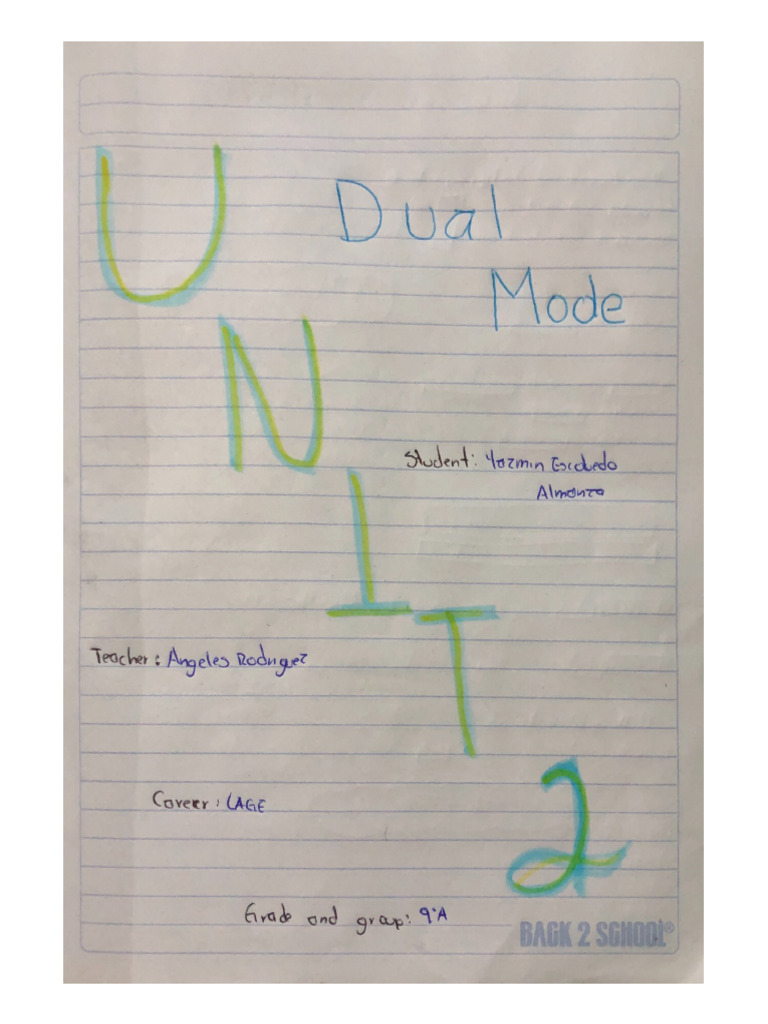 UNIT 2
Dual
Mode
Student: Yazmin Escobedo
Almanza
Teacher: Angeles Rodriguez
Career: LAGE
Grade and group: 9°A
BACK 2 SCHOOL®